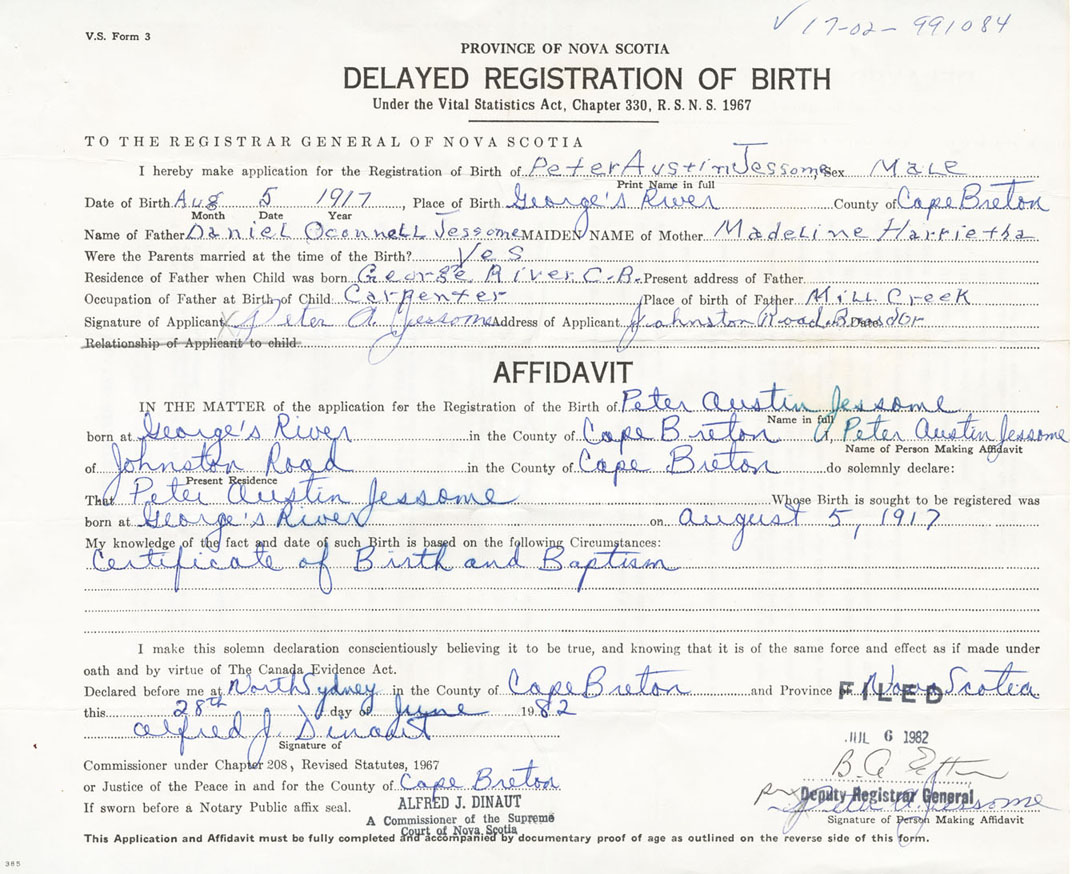 V.S. Form 3
✓ 17-02-991084
PROVINCE OF NOVA SCOTIA
DELAYED REGISTRATION OF BIRTH
Under the Vital Statistics Act, Chapter 330, R. S. N. S. 1967
TO THE REGISTRAR GENERAL OF NOVA SCOTIA
I hereby make application for the Registration of Birth of Peter Austin Jessome Sex Male
Print Name in full
Date of Birth Aug 5 1917, Place of Birth George's River County of Cape Breton
Month Date Year
Name of Father Daniel Oconnell Jessome MAIDEN NAME of Mother Madeline Harrietha
Were the Parents married at the time of the Birth? Yes
Residence of Father when Child was born George River C.B. Present address of Father
Occupation of Father at Birth of Child Carpenter Place of birth of Father Mill Creek
Signature of Applicant X Peter A. Jessome Address of Applicant Johnston Road, Brasdor
Relationship of Applicant to child
AFFIDAVIT
IN THE MATTER of the application for the Registration of the Birth of Peter Austin Jessome
Name in full
born at George's River in the County of Cape Breton I, Peter Austin Jessome
Name of Person Making Affidavit
of Johnston Road in the County of Cape Breton do solemnly declare:
Present Residence
That Peter Austin Jessome Whose Birth is sought to be registered was
born at George's River on August 5, 1917
My knowledge of the fact and date of such Birth is based on the following Circumstances:
Certificate of Birth and Baptism
I make this solemn declaration conscientiously believing it to be true, and knowing that it is of the same force and effect as if made under
oath and by virtue of The Canada Evidence Act.
Declared before me at North Sydney in the County of Cape Breton and Province of Nova Scotia
FILED
this 28th day of June 1982
Alfred J Dinaut
Signature of
JUL 6 1982
Commissioner under Chapter 208, Revised Statutes, 1967
or Justice of the Peace in and for the County of Cape Breton
If sworn before a Notary Public affix seal.
ALFRED J. DINAUT
A Commissioner of the Supreme
Court of Nova Scotia
Deputy Registrar General
Peter A. Jessome
Signature of Person Making Affidavit
This Application and Affidavit must be fully completed and accompanied by documentary proof of age as outlined on the reverse side of this form.
385